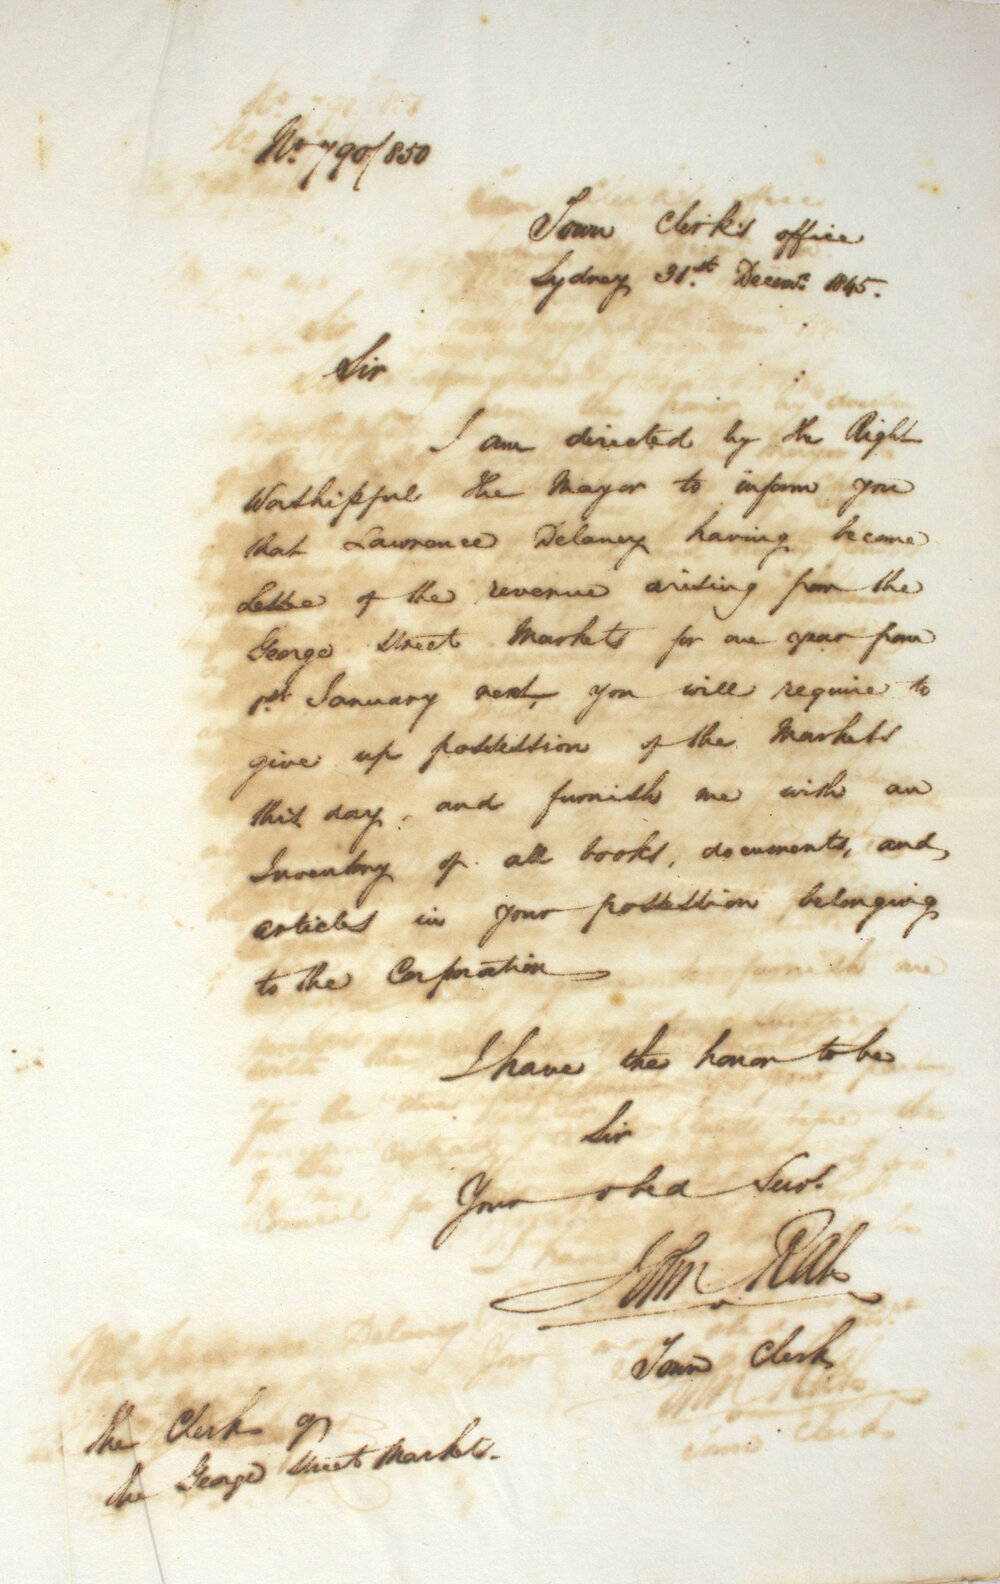 No. 790/850
Town Clerk's office
Sydney 31st. Decemr. 1845.
Sir
I am directed by the Right
Worshipful the Mayor to inform you
that Lawrence Delaney having become
Lessee of the revenue arising from the
George Street Markets for one year from
1st January next, you will require to
give up possession of the Markets
this day, and furnish me with an
Inventory of all books, documents, and,
articles in your possession belonging
to the Corporation
I have the honor to be
Sir
Your obed Servt.
John Rae
Town Clerk
The Clerk of
the George Street Markets.